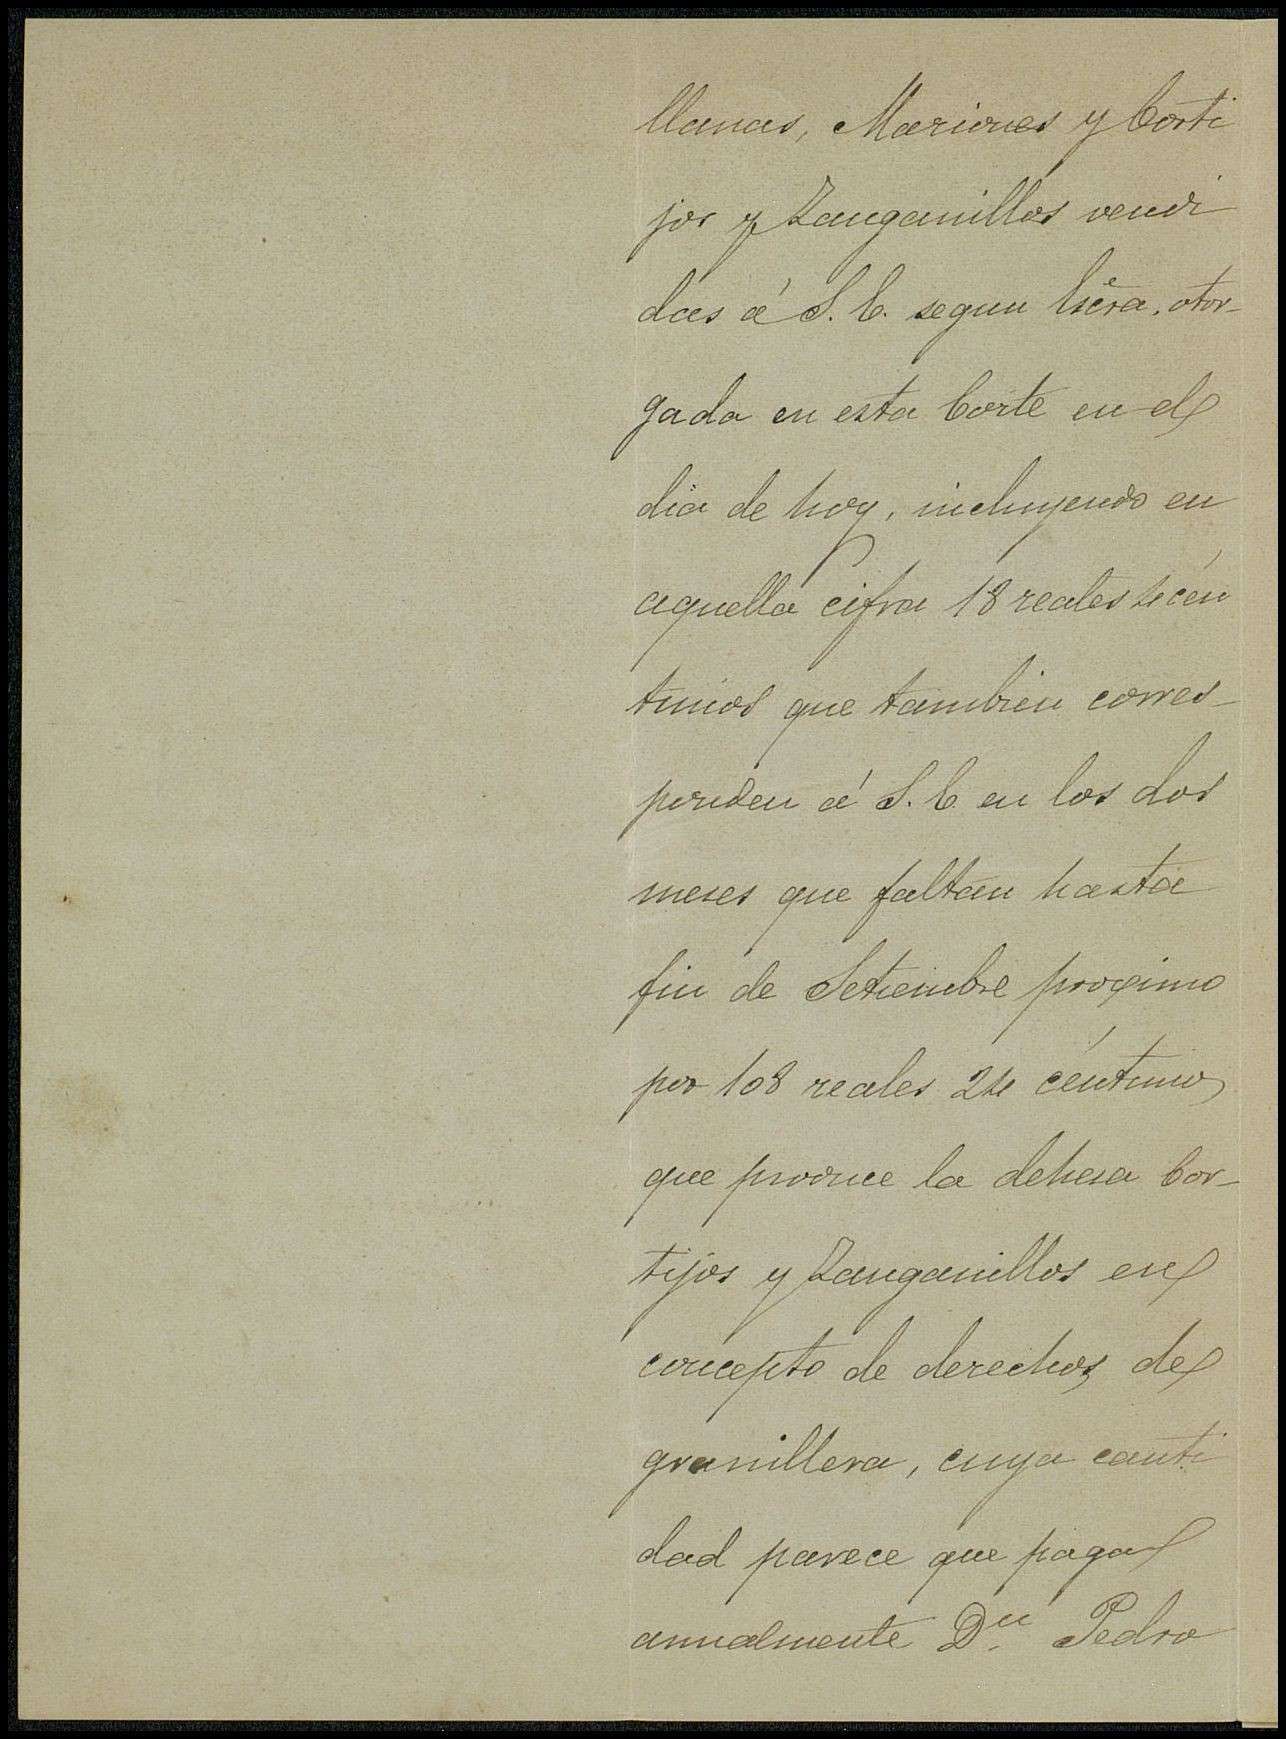 llanas, Mariones y Corti
jos y Zanganillos vendi
das á S. C. segun Escra. otor-
gada en esta Corte en el
dia de hoy, incluyendo en
aquella cifra 18 reales 4 cén
timos que tambien corres-
ponden á S. C. en los dos
meses que faltan hasta
fin de Setiembre proximo
por 108 reales 24 céntimos
que produce la dehesa Cor-
tijos y Zanganillos en
concepto de derechos de
granillera, cuya canti
dad parece que paga
anualmente Dn. Pedro